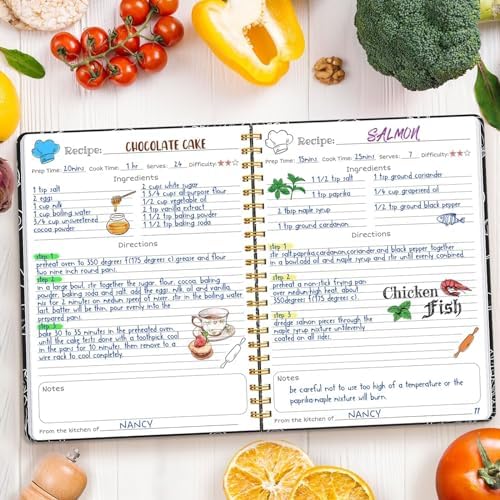 Recipe: CHOCOLATE CAKE
Prep Time: 20mins Cook Time: 1 hr Serves: 24 Difficulty:
Ingredients
1 tsp salt
2 eggs
1 cup milk
1 cup boiling water
3/4 cup unsweetened
cocoa powder
2 cups white sugar
1 3/4 cups all purpose flour
1/2 cup vegetable oil
2 tsp vanilla extract
1 1/2 tsp baking powder
1 1/2 tsp baking soda
Directions
step 1
preheat oven to 350 degrees f(175 degrees c) grease and flour
two nine inch round pans.
step 2
in a large bowl, stir together the sugar, flour, cocoa, baking
powder, baking soda and salt. add the eggs, milk, oil and vanilla,
mix for 2 minutes on medium speed of mixer. stir in the boiling water
last. batter will be thin. pour evenly into the
prepared pans.
step 3
bake 30 to 35 minutes in the preheated oven,
until the cake tests done with a toothpick. cool
in the pans for 10 minutes, then remove to a
wire rack to cool completely.
Notes
From the kitchen of NANCY
Recipe: SALMON
Prep Time: 15mins Cook Time: 25mins Serves: 7 Difficulty:
Ingredients
1 1/2 tsp salt
1 tsp paprika
2 tbsp maple syrup
1 tsp ground cardamon
1 tsp ground coriander
1/4 cup grapeseed oil
1/2 tsp ground black pepper
Directions
step 1
stir salt,paprika,cardamon,coriander,and black pepper together
in a bowl.add oil and maple syrup and stir until evenly conbined.
step 2
preheat a non-stick frying pan
over medium high heat. about
350degrees f(175 degrees c).
Chicken
Fish
step 3
dredge salmon pieces through the
maple syrup mixture untilevenly
coated on all sides.
Notes
be careful not to use too high of a temperature or the
paprika-maple mixture will burn.
From the kitchen of NANCY
11